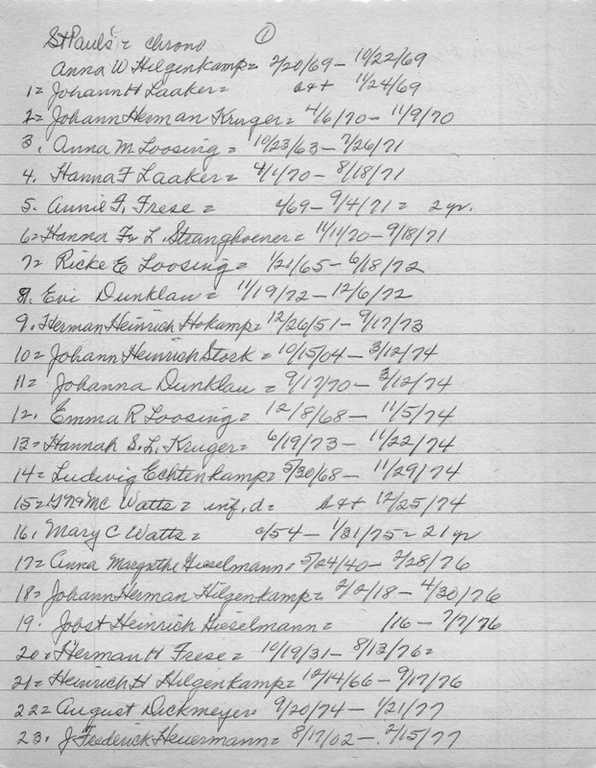 St Pauls = chrono ①
Anna W Hilgenkamp = 2/20/69 – 10/22/69
1 = Johann H Laaker = b & + 11/24/69
2 = Johann Herman Kruger = 4/6/70 – 11/9/70
3. Anna M Loosing = 10/23/63 – 7/26/71
4. Hanna F Laaker = 4/1/70 – 8/18/71
5. Annie F. Frese = 4/69 – 9/4/71 = 2 yr.
6 = Hanna Fr L. Strunghoener = 11/11/70 – 9/18/71
7 = Ricke E Loosing = 1/21/65 – 6/18/72
8. Evi Dunklau = 11/19/72 – 12/6/72
9. Herman Heinrich Hokamp = 12/26/51 – 9/17/73
10 = Johann Heinrich Stork = 10/15/04 – 3/12/74
11 = Johanna Dunklau = 9/17/70 – 3/12/74
12. Emma R Loosing = 12/8/68 – 11/5/74
13 = Hannah S. L. Kruger = 6/19/73 – 11/22/74
14 = Ludwig Echtenkamp = 5/30/68 – 11/29/74
15 = Mc Watts = inf. d = b & + 12/25/74
16. Mary C Watts = c/54 – 1/31/75 = 21 yr
17 = Anna Margrethe Hieselmann = 5/24/40 – 2/28/76
18 = Johann Herman Hilgenkamp = 2/2/18 – 4/30/76
19. Jobst Heinrich Hieselmann = /16 – 7/7/76
20. Herman H Frese = 10/19/31 – 8/13/76 =
21 = Heinrich H Hilgenkamp = 12/14/66 – 9/17/76
22 = August Dickmeyer. 9/20/74 – 1/21/77
23. J Frederick Heuermann = 8/17/02 – 2/15/77